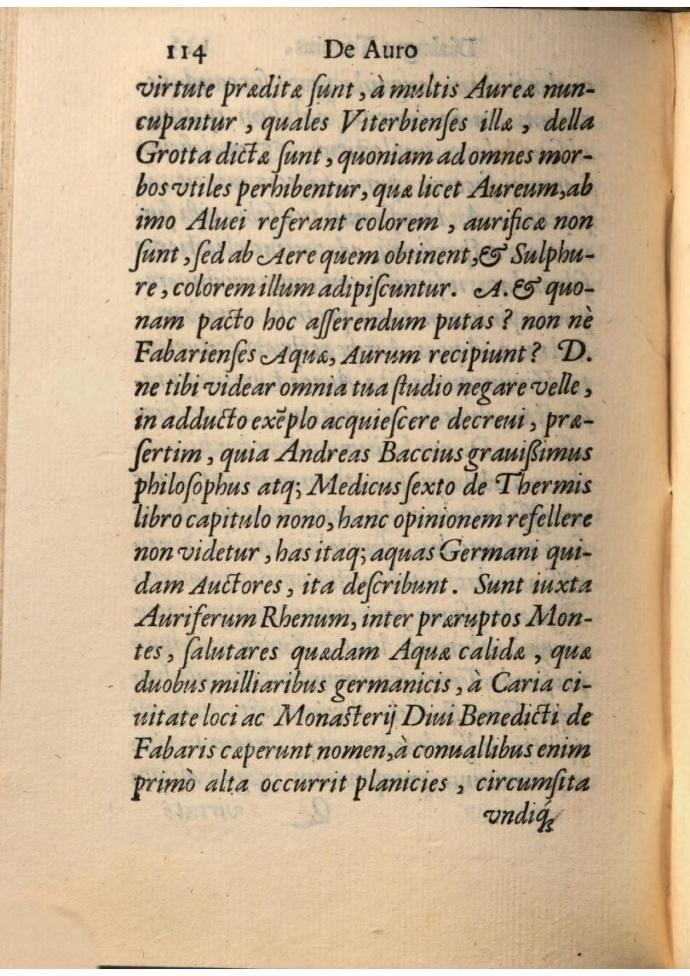 114 De Auro
virtute præditæ ſunt, à multis Aureæ nun-
cupantur, quales Viterbienſes illæ, della
Grotta dictæ ſunt, quoniam ad omnes mor-
bos vtiles perhibentur, quæ licet Aureum, ab
imo Aluei referant colorem, aurificæ non
ſunt, ſed ab Aere quem obtinent, & Sulphu-
re, colorem illum adipiſcuntur. A. & quo-
nam pacto hoc aſſerendum putas? non nè
Fabarienſes Aquæ, Aurum recipiunt? D.
ne tibi videar omnia tua ſtudio negare velle,
in adducto exẽplo acquieſcere decreui, præ-
ſertim, quia Andreas Baccius grauißimus
philoſophus atq; Medicus ſexto de Thermis
libro capitulo nono, hanc opinionem refellere
non videtur, has itaq; aquas Germani qui-
dam Auctores, ita deſcribunt. Sunt iuxta
Auriferum Rhenum, inter præruptos Mon-
tes, ſalutares quædam Aquæ calidæ, quæ
duobus milliaribus germanicis, à Caria ci-
uitate loci ac Monaſterij Diui Benedicti de
Fabaris cæperunt nomen, à conuallibus enim
primò alta occurrit planicies, circumſita
vndiq́;